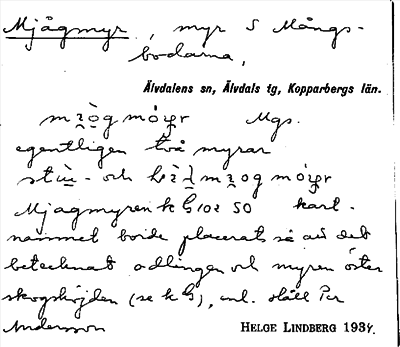 Mjågmyr, myr S Mångs-
bodarna,
Älvdalens sn, Älvdals tg, Kopparbergs län.
Mgs.
egentligen två myrar
och
Mjagmyren k G 102 SO kart-
namnet borde placerats så att det
betecknat odlingen och myren öster
skogshöjden (se k G), enl. Håll Per
Andersson
HELGE LINDBERG 1934.